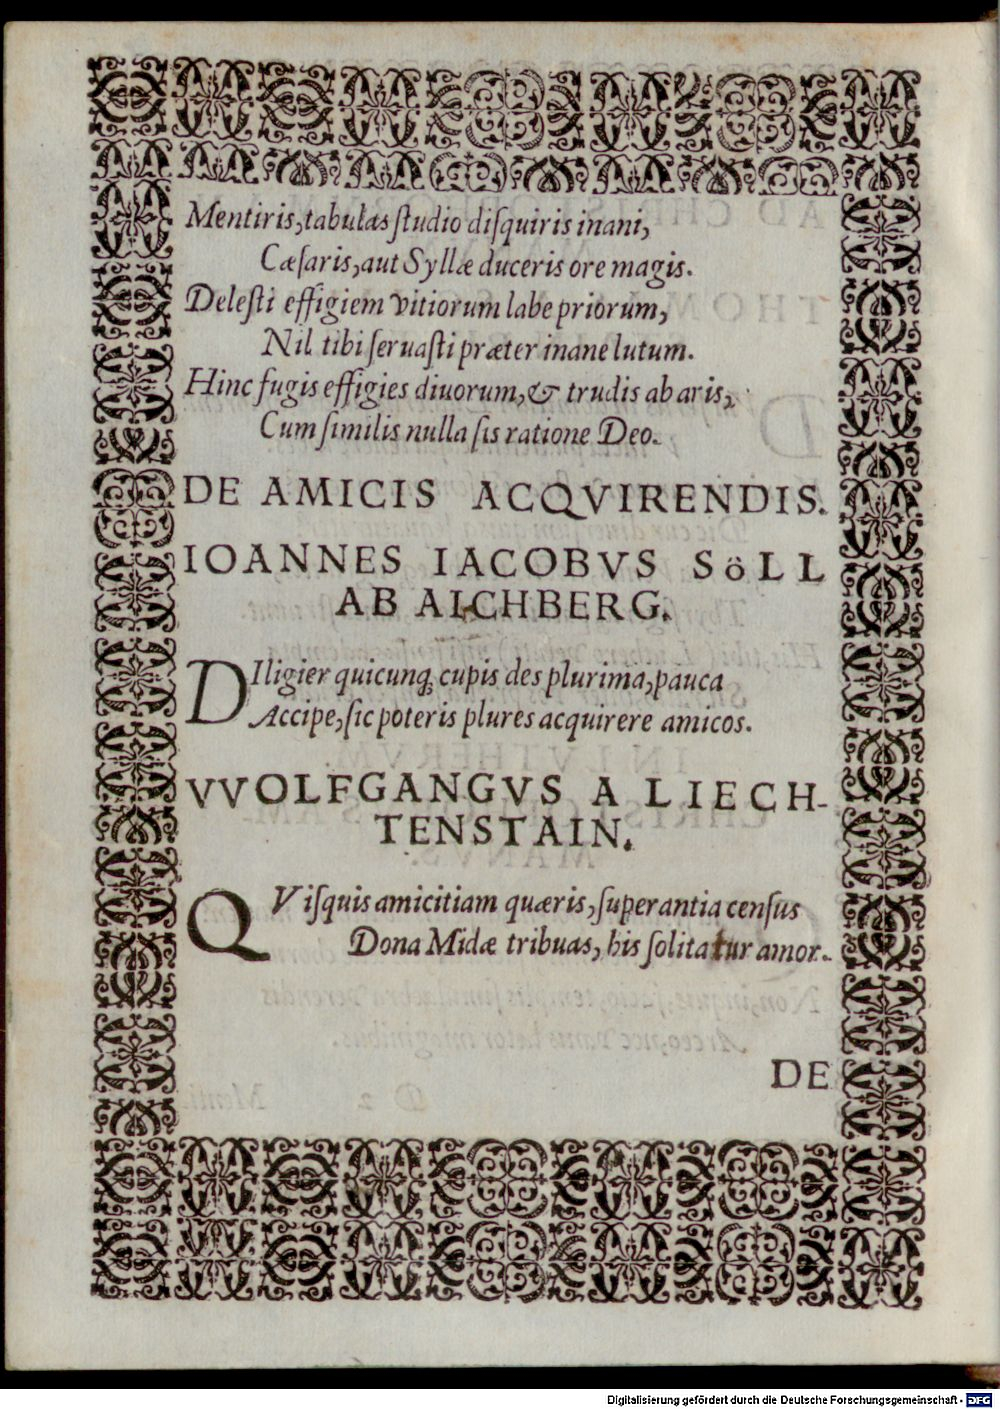 Mentiris, tabulas ſtudio diſquiris inani,
Cæſaris, aut Syllæ duceris ore magis.
Deleſti effigiem vitiorum labe priorum,
Nil tibi ſeruaſti præter inane lutum.
Hinc fugis effigies diuorum, & trudis ab aris,
Cum ſimilis nulla ſis ratione Deo.
DE AMICIS ACQVIRENDIS.
IOANNES IACOBVS SöLL
AB AICHBERG.
DIligier quicunq; cupis des plurima, pauca
Accipe, ſic poteris plures acquirere amicos.
VVOLFGANGVS A LIECH-
TENSTAIN.
QViſquis amicitiam quæris, ſuperantia cenſus
Dona Midæ tribuas, his ſolitatur amor.
DE
Digitalisierung gefördert durch die Deutsche Forschungsgemeinschaft - DFG